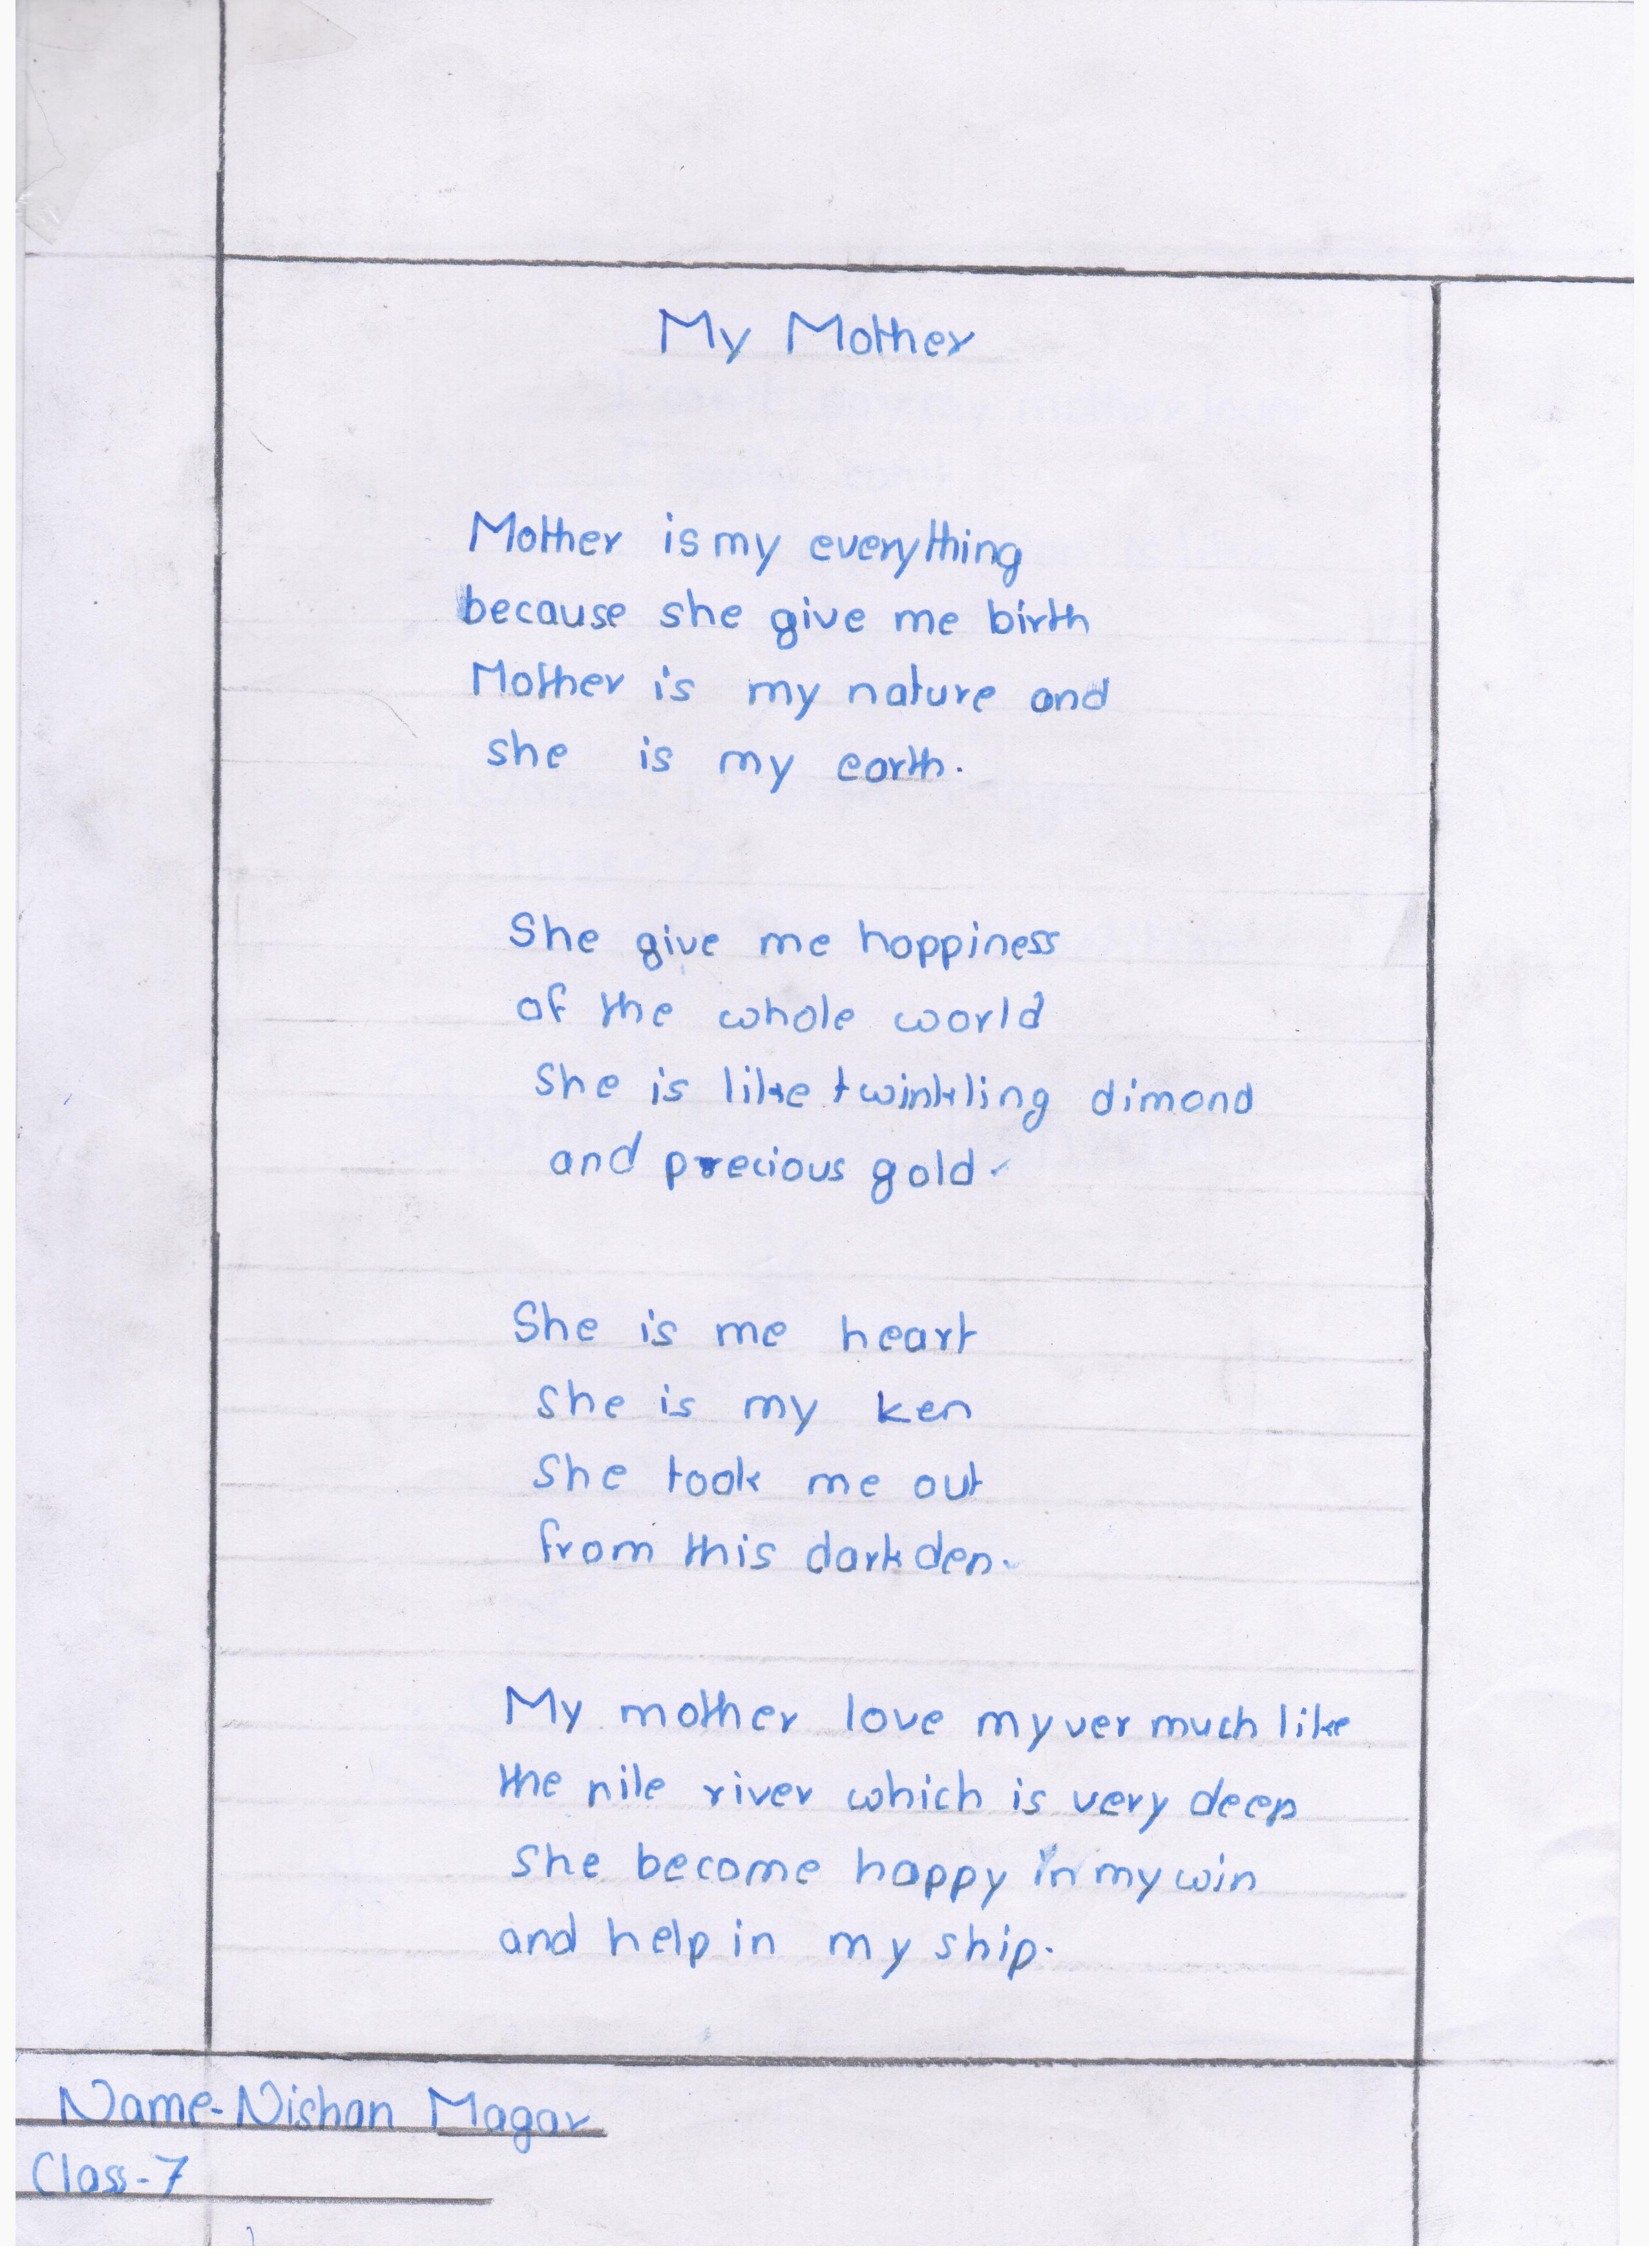 My Mother
Mother is my everything
because she give me birth
Mother is my nature and
she is my earth.
She give me happiness
of the whole world
She is like twinkling dimond
and precious gold.
She is me heart
she is my ken
She took me out
from this dark den.
My mother love my ver much like
the nile river which is very deep
She become happy in my win
and help in my ship.
Name-Nishan Magar
Class-7